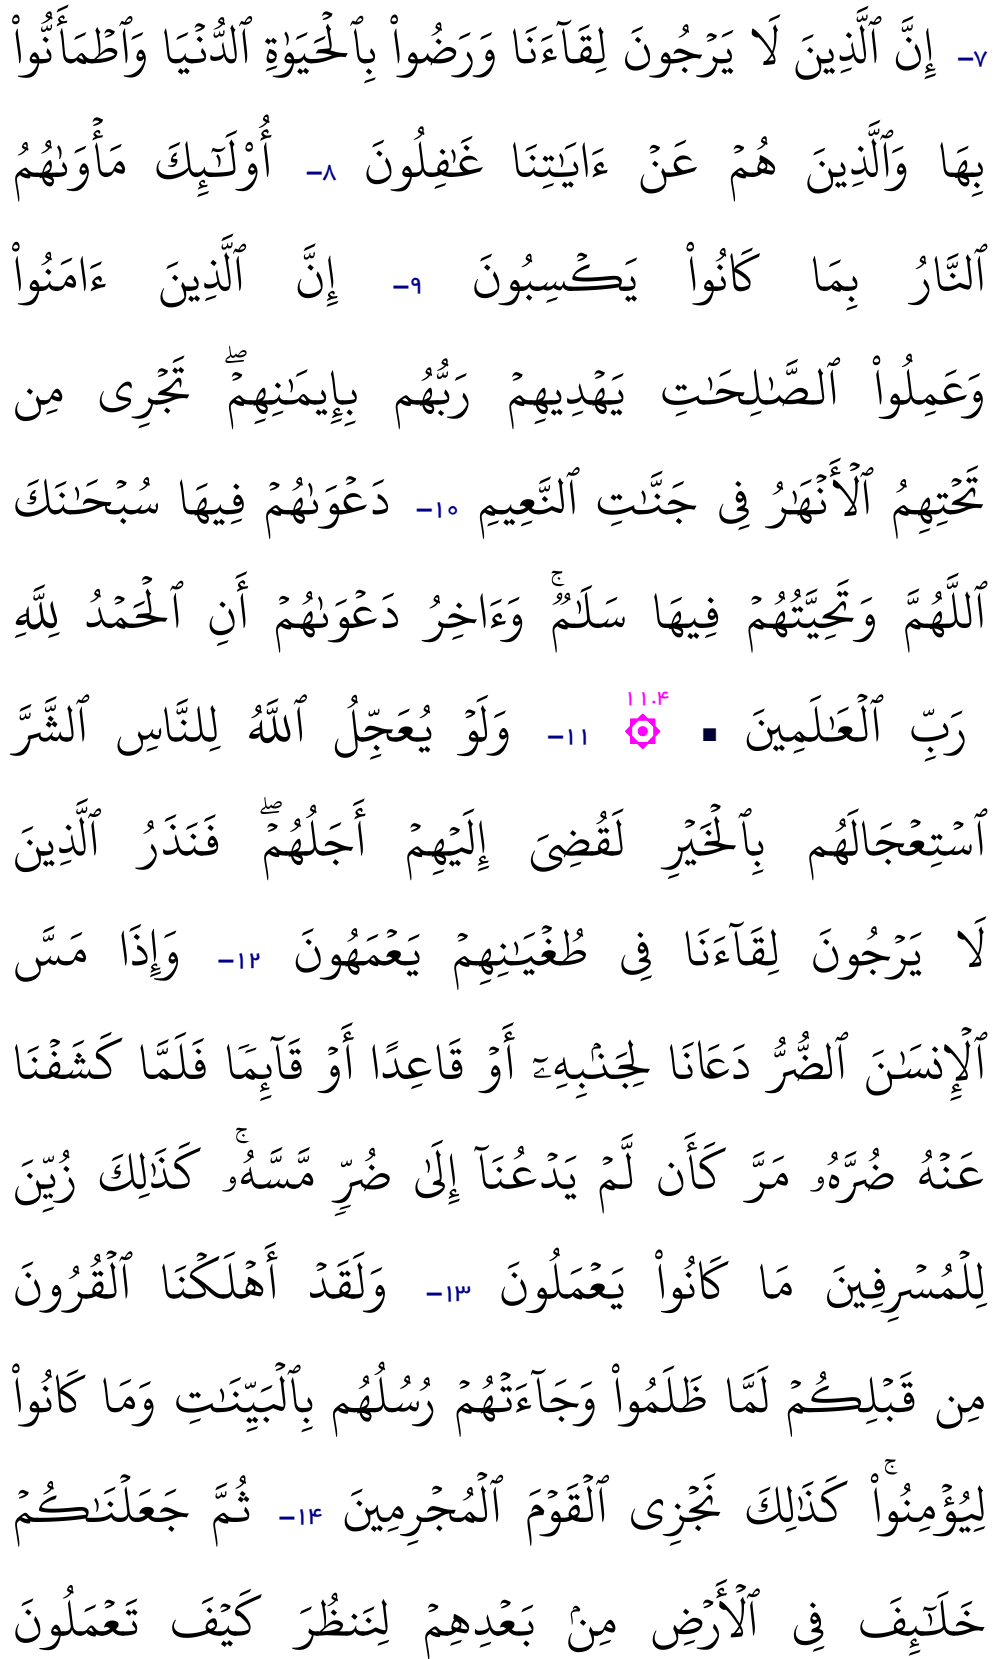 ۷- إِنَّ ٱلَّذِينَ لَا يَرۡجُونَ لِقَآءَنَا وَرَضُواْ بِٱلۡحَيَوٰةِ ٱلدُّنۡيَا وَٱطۡمَأَنُّواْ
بِهَا وَٱلَّذِينَ هُمۡ عَنۡ ءَايَٰتِنَا غَٰفِلُونَ ۸- أُوْلَٰٓئِكَ مَأۡوَىٰهُمُ
ٱلنَّارُ بِمَا كَانُواْ يَكۡسِبُونَ ۹- إِنَّ ٱلَّذِينَ ءَامَنُواْ
وَعَمِلُواْ ٱلصَّٰلِحَٰتِ يَهۡدِيهِمۡ رَبُّهُم بِإِيمَٰنِهِمۡۖ تَجۡرِى مِن
تَحۡتِهِمُ ٱلۡأَنۡهَٰرُ فِى جَنَّٰتِ ٱلنَّعِيمِ ۱۰- دَعۡوَىٰهُمۡ فِيهَا سُبۡحَٰنَكَ
ٱللَّهُمَّ وَتَحِيَّتُهُمۡ فِيهَا سَلَٰمٞۚ وَءَاخِرُ دَعۡوَىٰهُمۡ أَنِ ٱلۡحَمۡدُ لِلَّهِ
رَبِّ ٱلۡعَٰلَمِينَ ▪ ۞ ۱۱.۴ ۱۱- وَلَوۡ يُعَجِّلُ ٱللَّهُ لِلنَّاسِ ٱلشَّرَّ
ٱسۡتِعۡجَالَهُم بِٱلۡخَيۡرِ لَقُضِىَ إِلَيۡهِمۡ أَجَلُهُمۡۖ فَنَذَرُ ٱلَّذِينَ
لَا يَرۡجُونَ لِقَآءَنَا فِى طُغۡيَٰنِهِمۡ يَعۡمَهُونَ ۱۲- وَإِذَا مَسَّ
ٱلۡإِنسَٰنَ ٱلضُّرُّ دَعَانَا لِجَنۢبِهِۦٓ أَوۡ قَاعِدًا أَوۡ قَآئِمٗا فَلَمَّا كَشَفۡنَا
عَنۡهُ ضُرَّهُۥ مَرَّ كَأَن لَّمۡ يَدۡعُنَآ إِلَىٰ ضُرّٖ مَّسَّهُۥۚ كَذَٰلِكَ زُيِّنَ
لِلۡمُسۡرِفِينَ مَا كَانُواْ يَعۡمَلُونَ ۱۳- وَلَقَدۡ أَهۡلَكۡنَا ٱلۡقُرُونَ
مِن قَبۡلِكُمۡ لَمَّا ظَلَمُواْ وَجَآءَتۡهُمۡ رُسُلُهُم بِٱلۡبَيِّنَٰتِ وَمَا كَانُواْ
لِيُؤۡمِنُواْۚ كَذَٰلِكَ نَجۡزِى ٱلۡقَوۡمَ ٱلۡمُجۡرِمِينَ ۱۴- ثُمَّ جَعَلۡنَٰكُمۡ
خَلَٰٓئِفَ فِى ٱلۡأَرۡضِ مِنۢ بَعۡدِهِمۡ لِنَنظُرَ كَيۡفَ تَعۡمَلُونَ